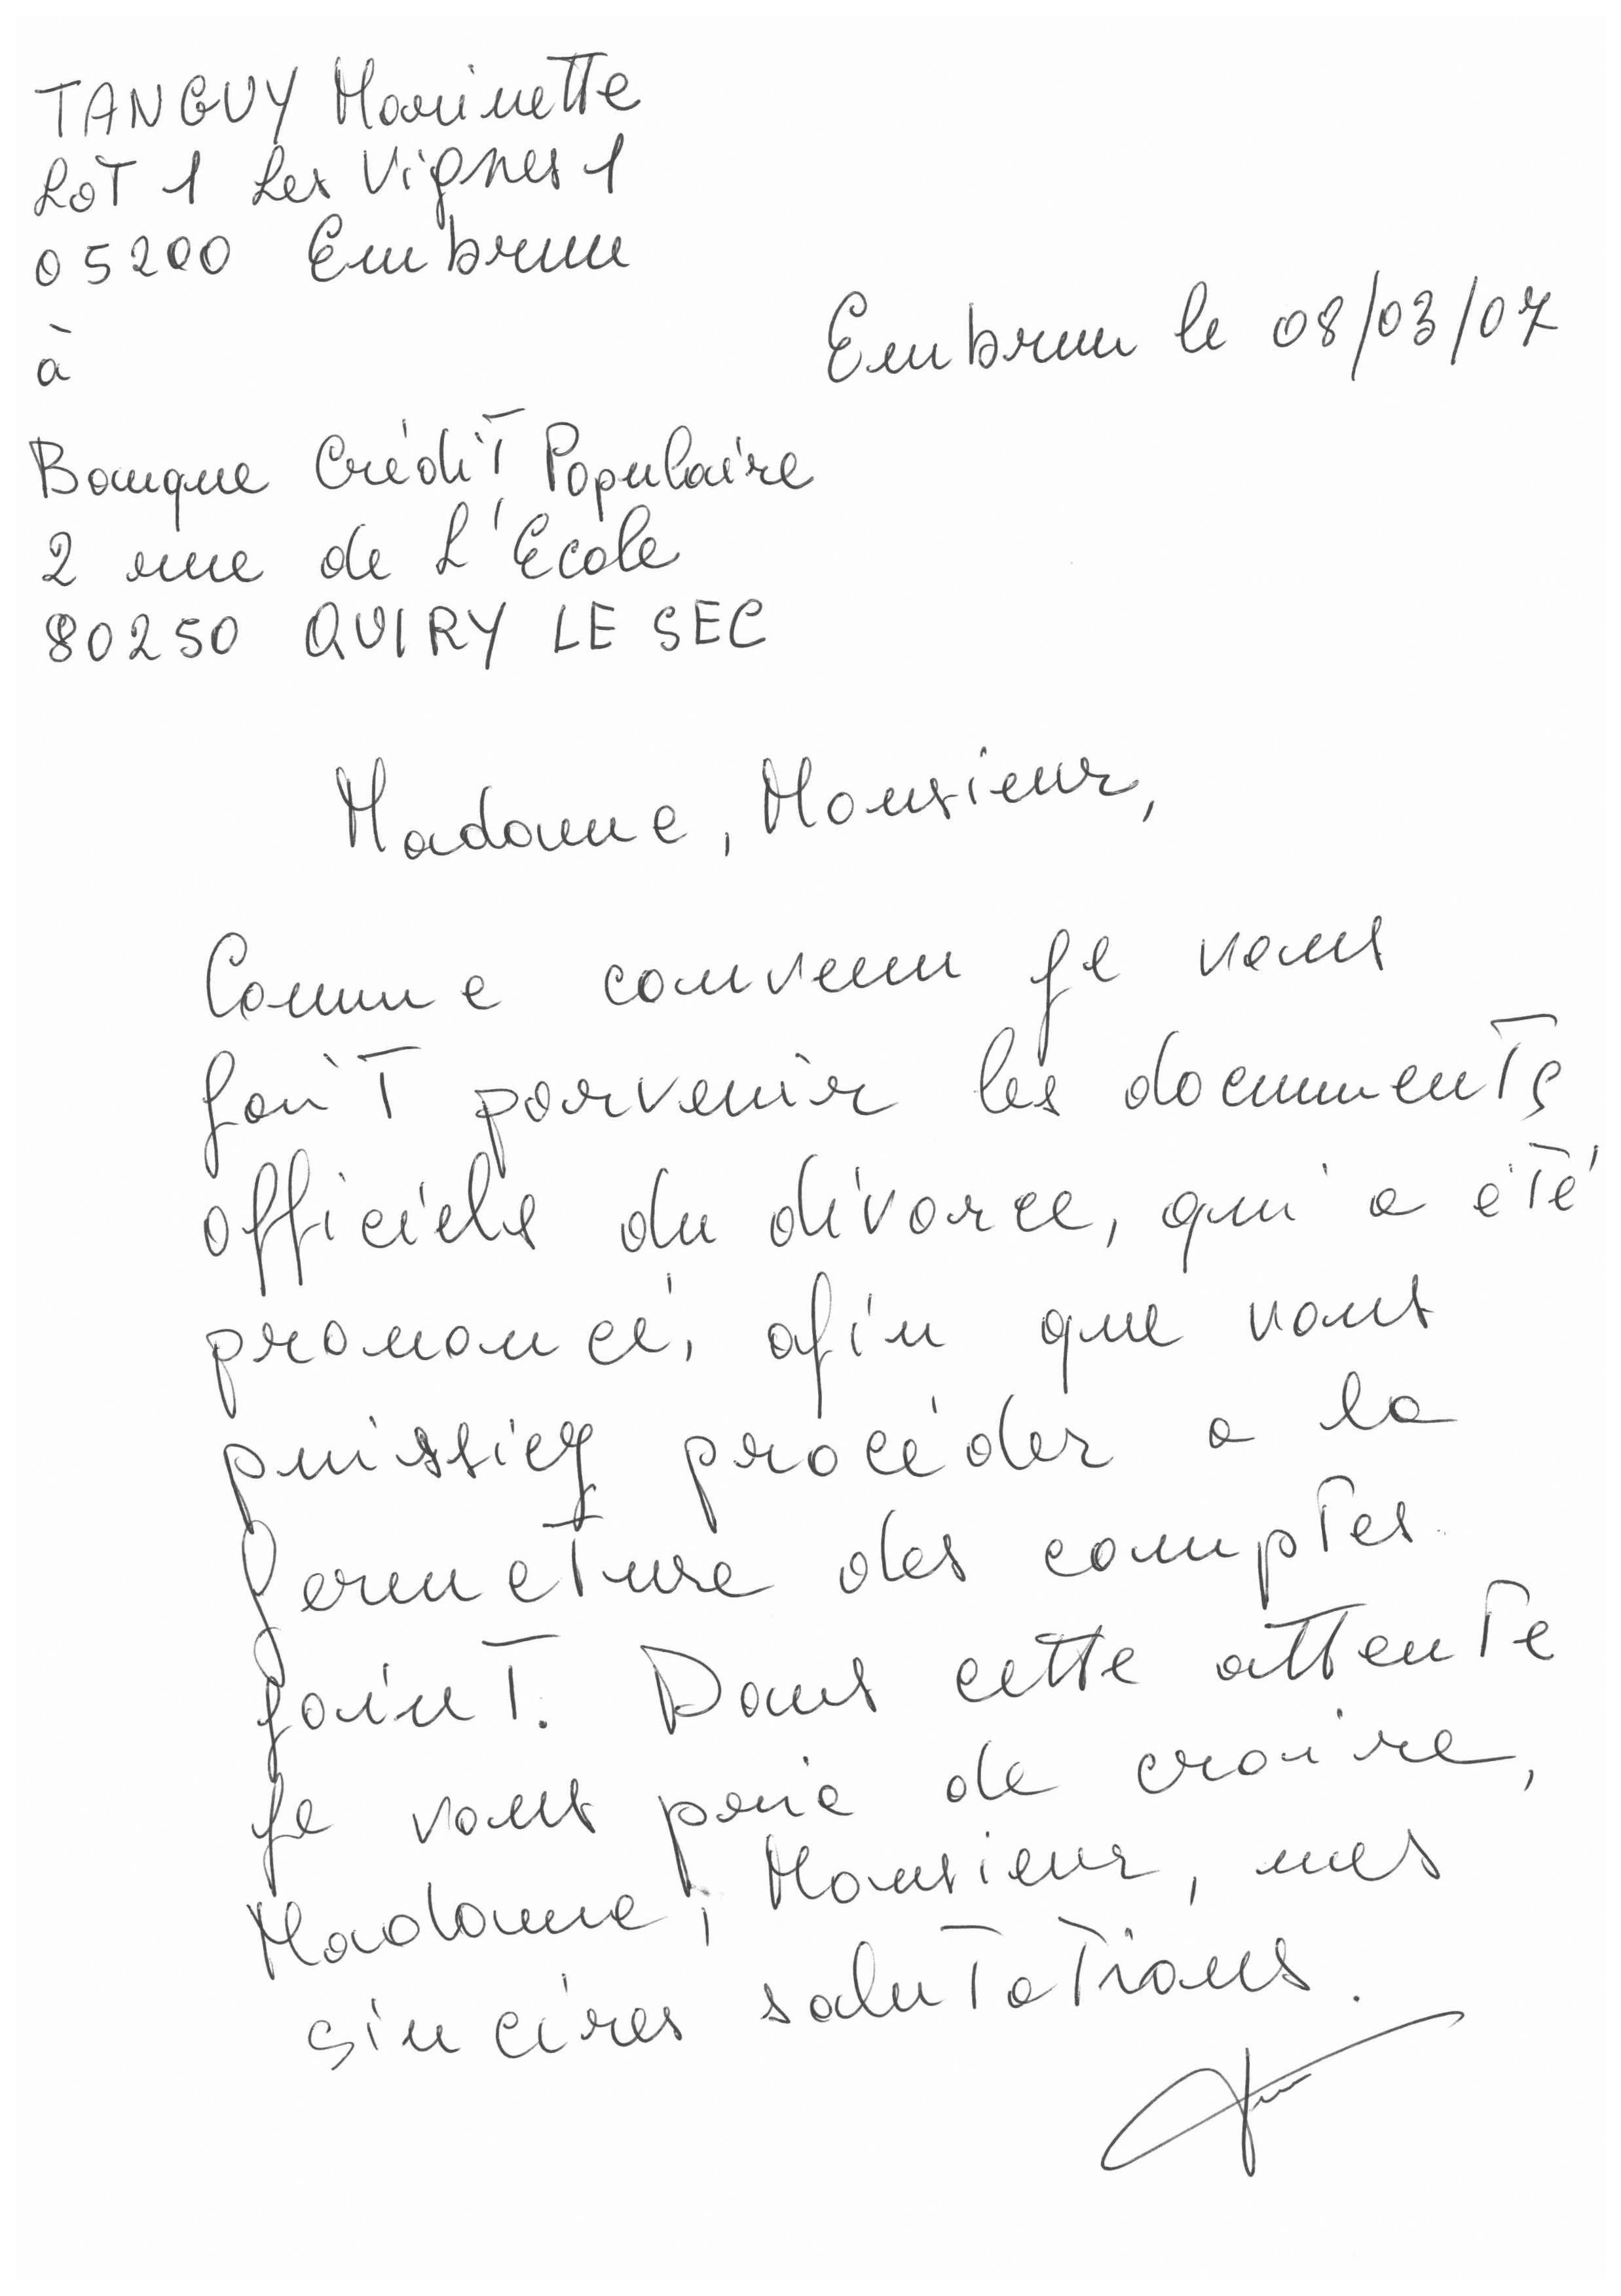 TANGUY Marinette
LOT 1 Les Vignes 1
05200 Embrun
Embrun le 08/03/07
à
Banque Crédit Populaire
2 rue de L'Ecole
80250 QUIRY LE SEC
Madame, Monsieur,
Comme convenu je vous
fait parvenir les documents
officiels du divorce, qui a été
prononcé, afin que vous
puissiez procéder a la
fermeture des comptes
joint. Dans cette attente
je vous prie de croire,
Madame, Monsieur, mes
sincères salutations.